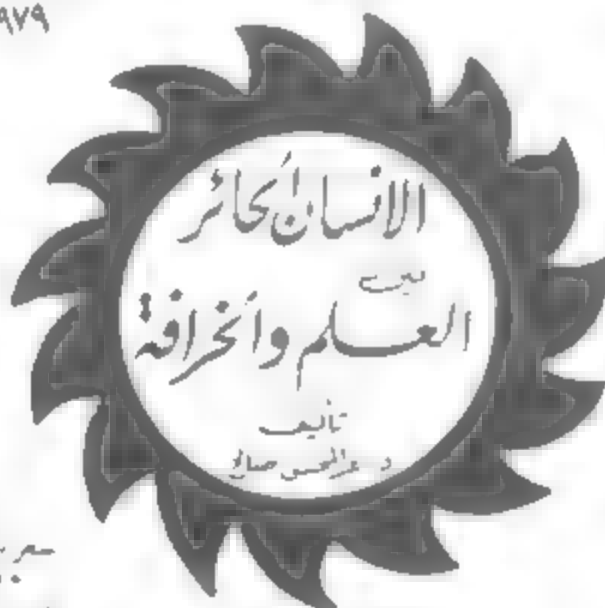 ٩٧٩
الانسان الحائر
بين
العلم والخرافة
تأليف
د. عبد المحسن صالح